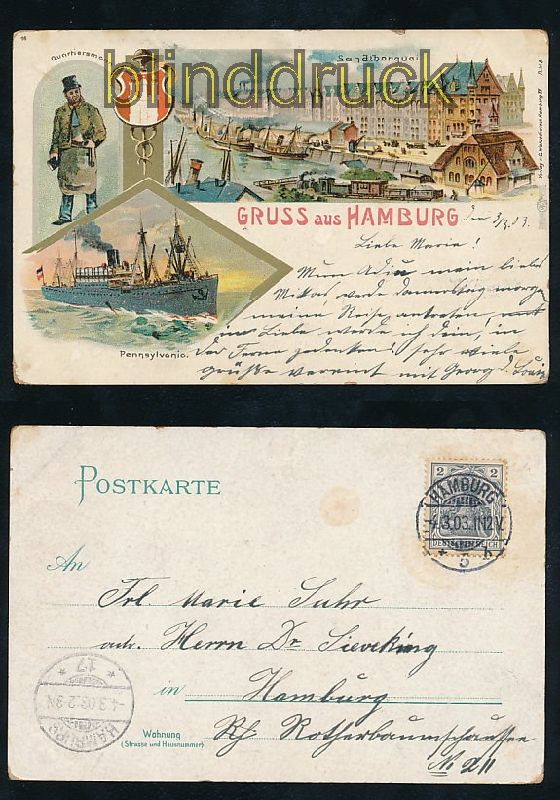 blinddruck
16
Quartiersmann
Sandthorquai
GRUSS aus HAMBURG
den 3/3. 03.
Liebe Marie!
mein lieber
werde Donnerstag morgen
meine Reise antreten,
in Liebe werde ich Dein, in
der Ferne gedenken! sehr viele
grüße vereint mit Georg d. Louis
Pennsylvania.
POSTKARTE
2 2
HAMBURG
4.3.03.11-12V.
DEUTSCHES REICH
* 5 b
An
Frl. Marie Suhr
adr. Herrn Dr Sieveking
in Hamburg
Wohnung
(Strasse und Hausnummer)
Rh. Rotherbaumchaussee
No 211
HAMBURG
4.3.03.2-3N
* 17 *